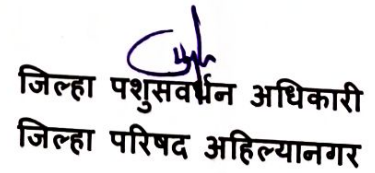 जिल्हा पशुसवर्धन अधिकारी
जिल्हा परिषद अहिल्यानगर